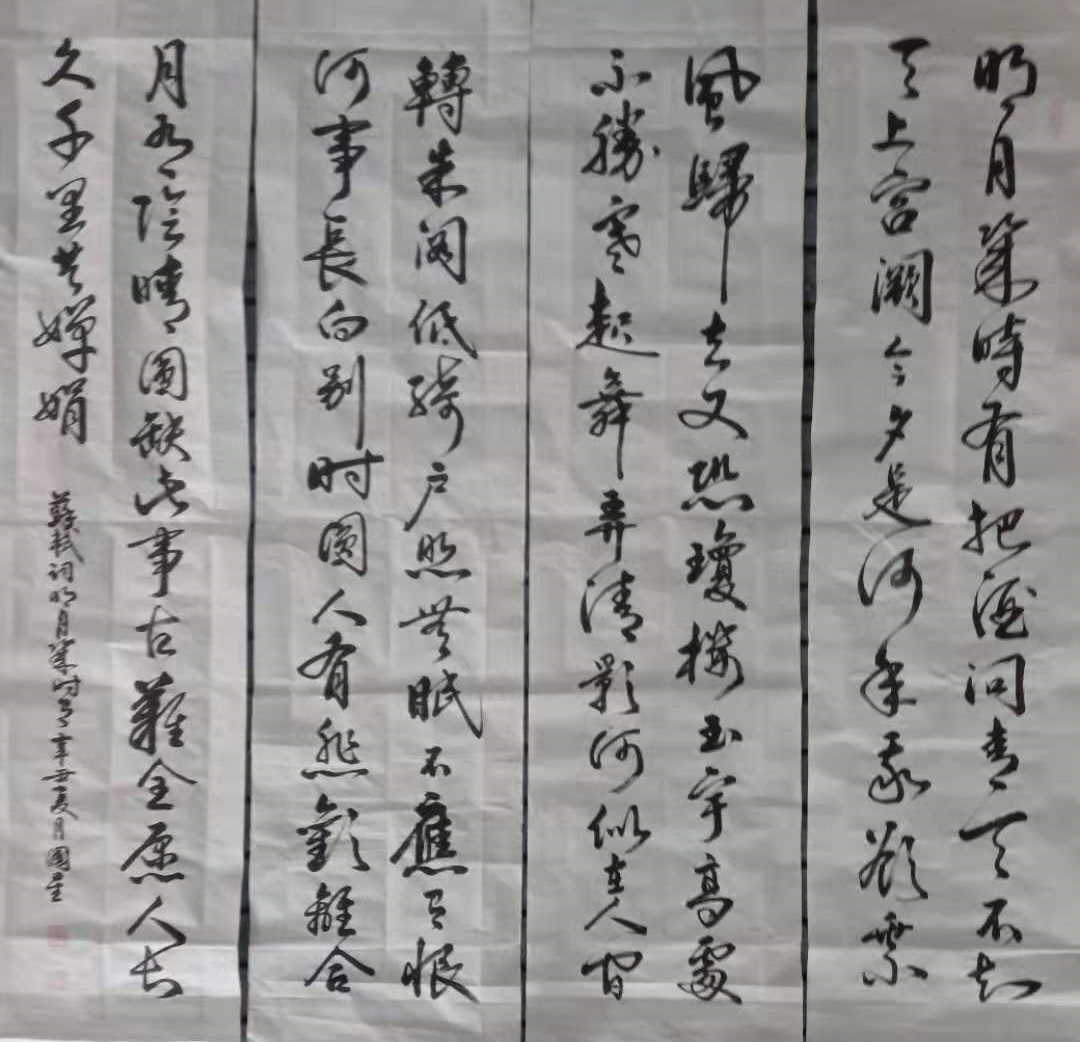 明月几時有把酒問青天不知
天上宮闕今夕是何年我欲乘
風歸去又恐瓊樓玉宇高處
不勝寒起舞弄清影何似在人間
轉朱阁低綺户照無眠不應有恨
何事長向别时圆人有悲歡離合
月有陰晴圆缺此事古難全愿人长
久千里共嬋娟
蘇軾词明月几时有辛丑夏月國星